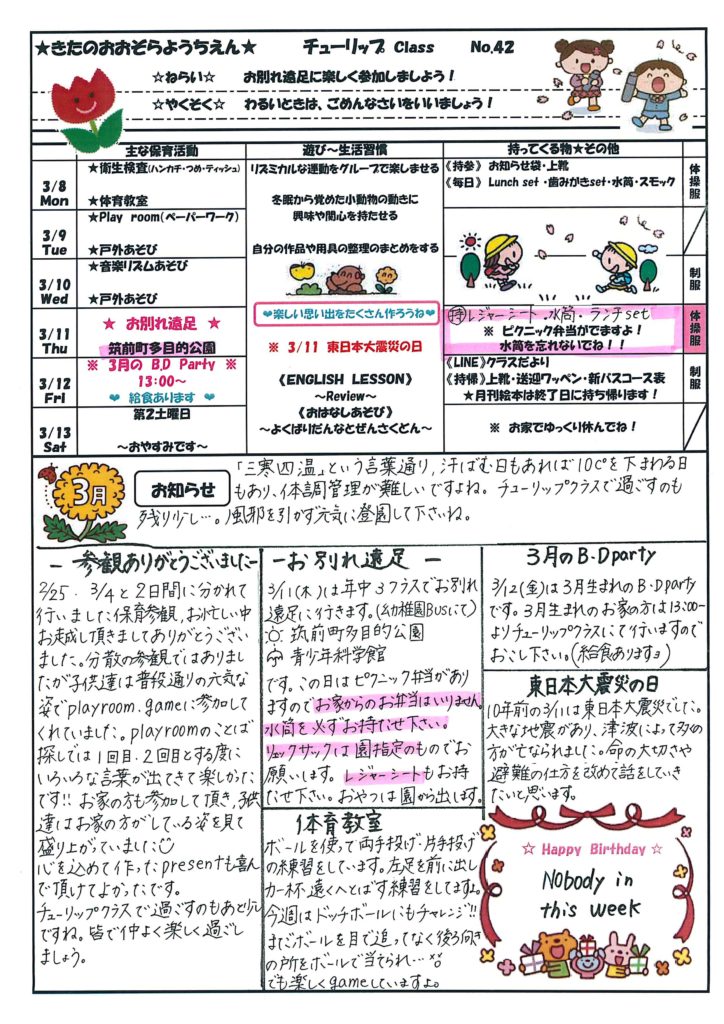 ★きたのおおぞらようちえん★ チューリップ Class No.42
☆ねらい☆ お別れ遠足に楽しく参加しましょう！
☆やくそく☆ わるいときは、ごめんなさいをいいましょう！
主な保育活動 遊び～生活習慣 持ってくる物★その他
3/8 Mon
★衛生検査(ハンカチ・つめ・ティッシュ)
★体育教室
リズミカルな運動をグループで楽しませる
《持参》 お知らせ袋・上靴
《毎日》 Lunch set ・歯みがきset・水筒・スモック
体操服
3/9 Tue
★Play room(ペーパーワーク)
★戸外あそび
冬眠から覚めた小動物の動きに
興味や関心を持たせる
自分の作品や用具の整理のまとめをする
3/10 Wed
★音楽リズムあそび
★戸外あそび
制服
❤楽しい思い出をたくさん作ろうね❤
3/11 Thu
★ お別れ遠足 ★
筑前町多目的公園
※ 3/11 東日本大震災の日
持 レジャーシート・水筒・ランチset
※ ピクニック弁当がでますよ！
水筒を忘れないでね！！
体操服
3/12 Fri
※ 3月の B.D Party ※
13:00～
❤ 給食あります ❤
《ENGLISH LESSON》
～Review～
《LINE》クラスだより
《持帰》上靴・送迎ワッペン・新バスコース表
★月刊絵本は終了日に持ち帰ります！
制服
3/13 Sat
第2土曜日
～おやすみです～
《おはなしあそび》
～よくばりだんなとぜんさくどん～
※ お家でゆっくり休んでね！
3月
お知らせ
「三寒四温」という言葉通り、汗ばむ日もあれば10℃を下まわる日
もあり、体調管理が難しいですよね。チューリップクラスで過ごすのも
残り少し…。風邪を引かず元気に登園して下さいね。
― 参観ありがとうございました ―
2/25・3/4と2日間に分かれて
行いました保育参観、お忙しい中
お越し頂きましてありがとうござい
ました。分散の参観ではありまし
たが子供達は普段通りの元気な
姿でplayroom.gameに参加して
くれていました。playroomのことば
探しでは1回目・2回目とする度に
いろいろな言葉が出てきて楽しかった
です!! お家の方も参加して頂き、子供
達はお家の方がしている姿を見て
盛り上がっていました
心を込めて作ったpresentも喜ん
で頂けてよかったです。
チューリップクラスで過ごすのもあと少し
ですね。皆で仲よく楽しく過ごし
ましょう。
― お別れ遠足 ―
3/11(木)は年中3クラスでお別れ
遠足に行きます。(幼稚園Busにて)
筑前町多目的公園
青少年科学館
です。この日はピクニック弁当があり
ますのでお家からのお弁当はいりません。
水筒を必ずお持たせ下さい。
リュックサックは園指定のものでお
願いします。レジャーシートもお持
たせ下さい。おやつは園から出します。
体育教室
ボールを使って両手投げ・片手投げ
の練習をしています。左足を前に出し
力一杯遠くへとばす練習をしてますよ。
今週はドッチボールにもチャレンジ!!
まだボールを目で追ってなく後ろ向き
の所をボールで当てられ…
でも楽しくgameしていますよ。
3月のB・D party
3/12(金)は3月生まれのB・D party
です。3月生まれのお家の方は13:00～
よりチューリップクラスにて行いますので
おこし下さい。(給食あります)
東日本大震災の日
10年前の3/11は東日本大震災でした。
大きな地震があり、津波によって多く
の方が亡なられました。命の大切さや
避難の仕方を改めて話をしていき
たいと思います。
☆ Happy Birthday ☆
Nobody in
this week